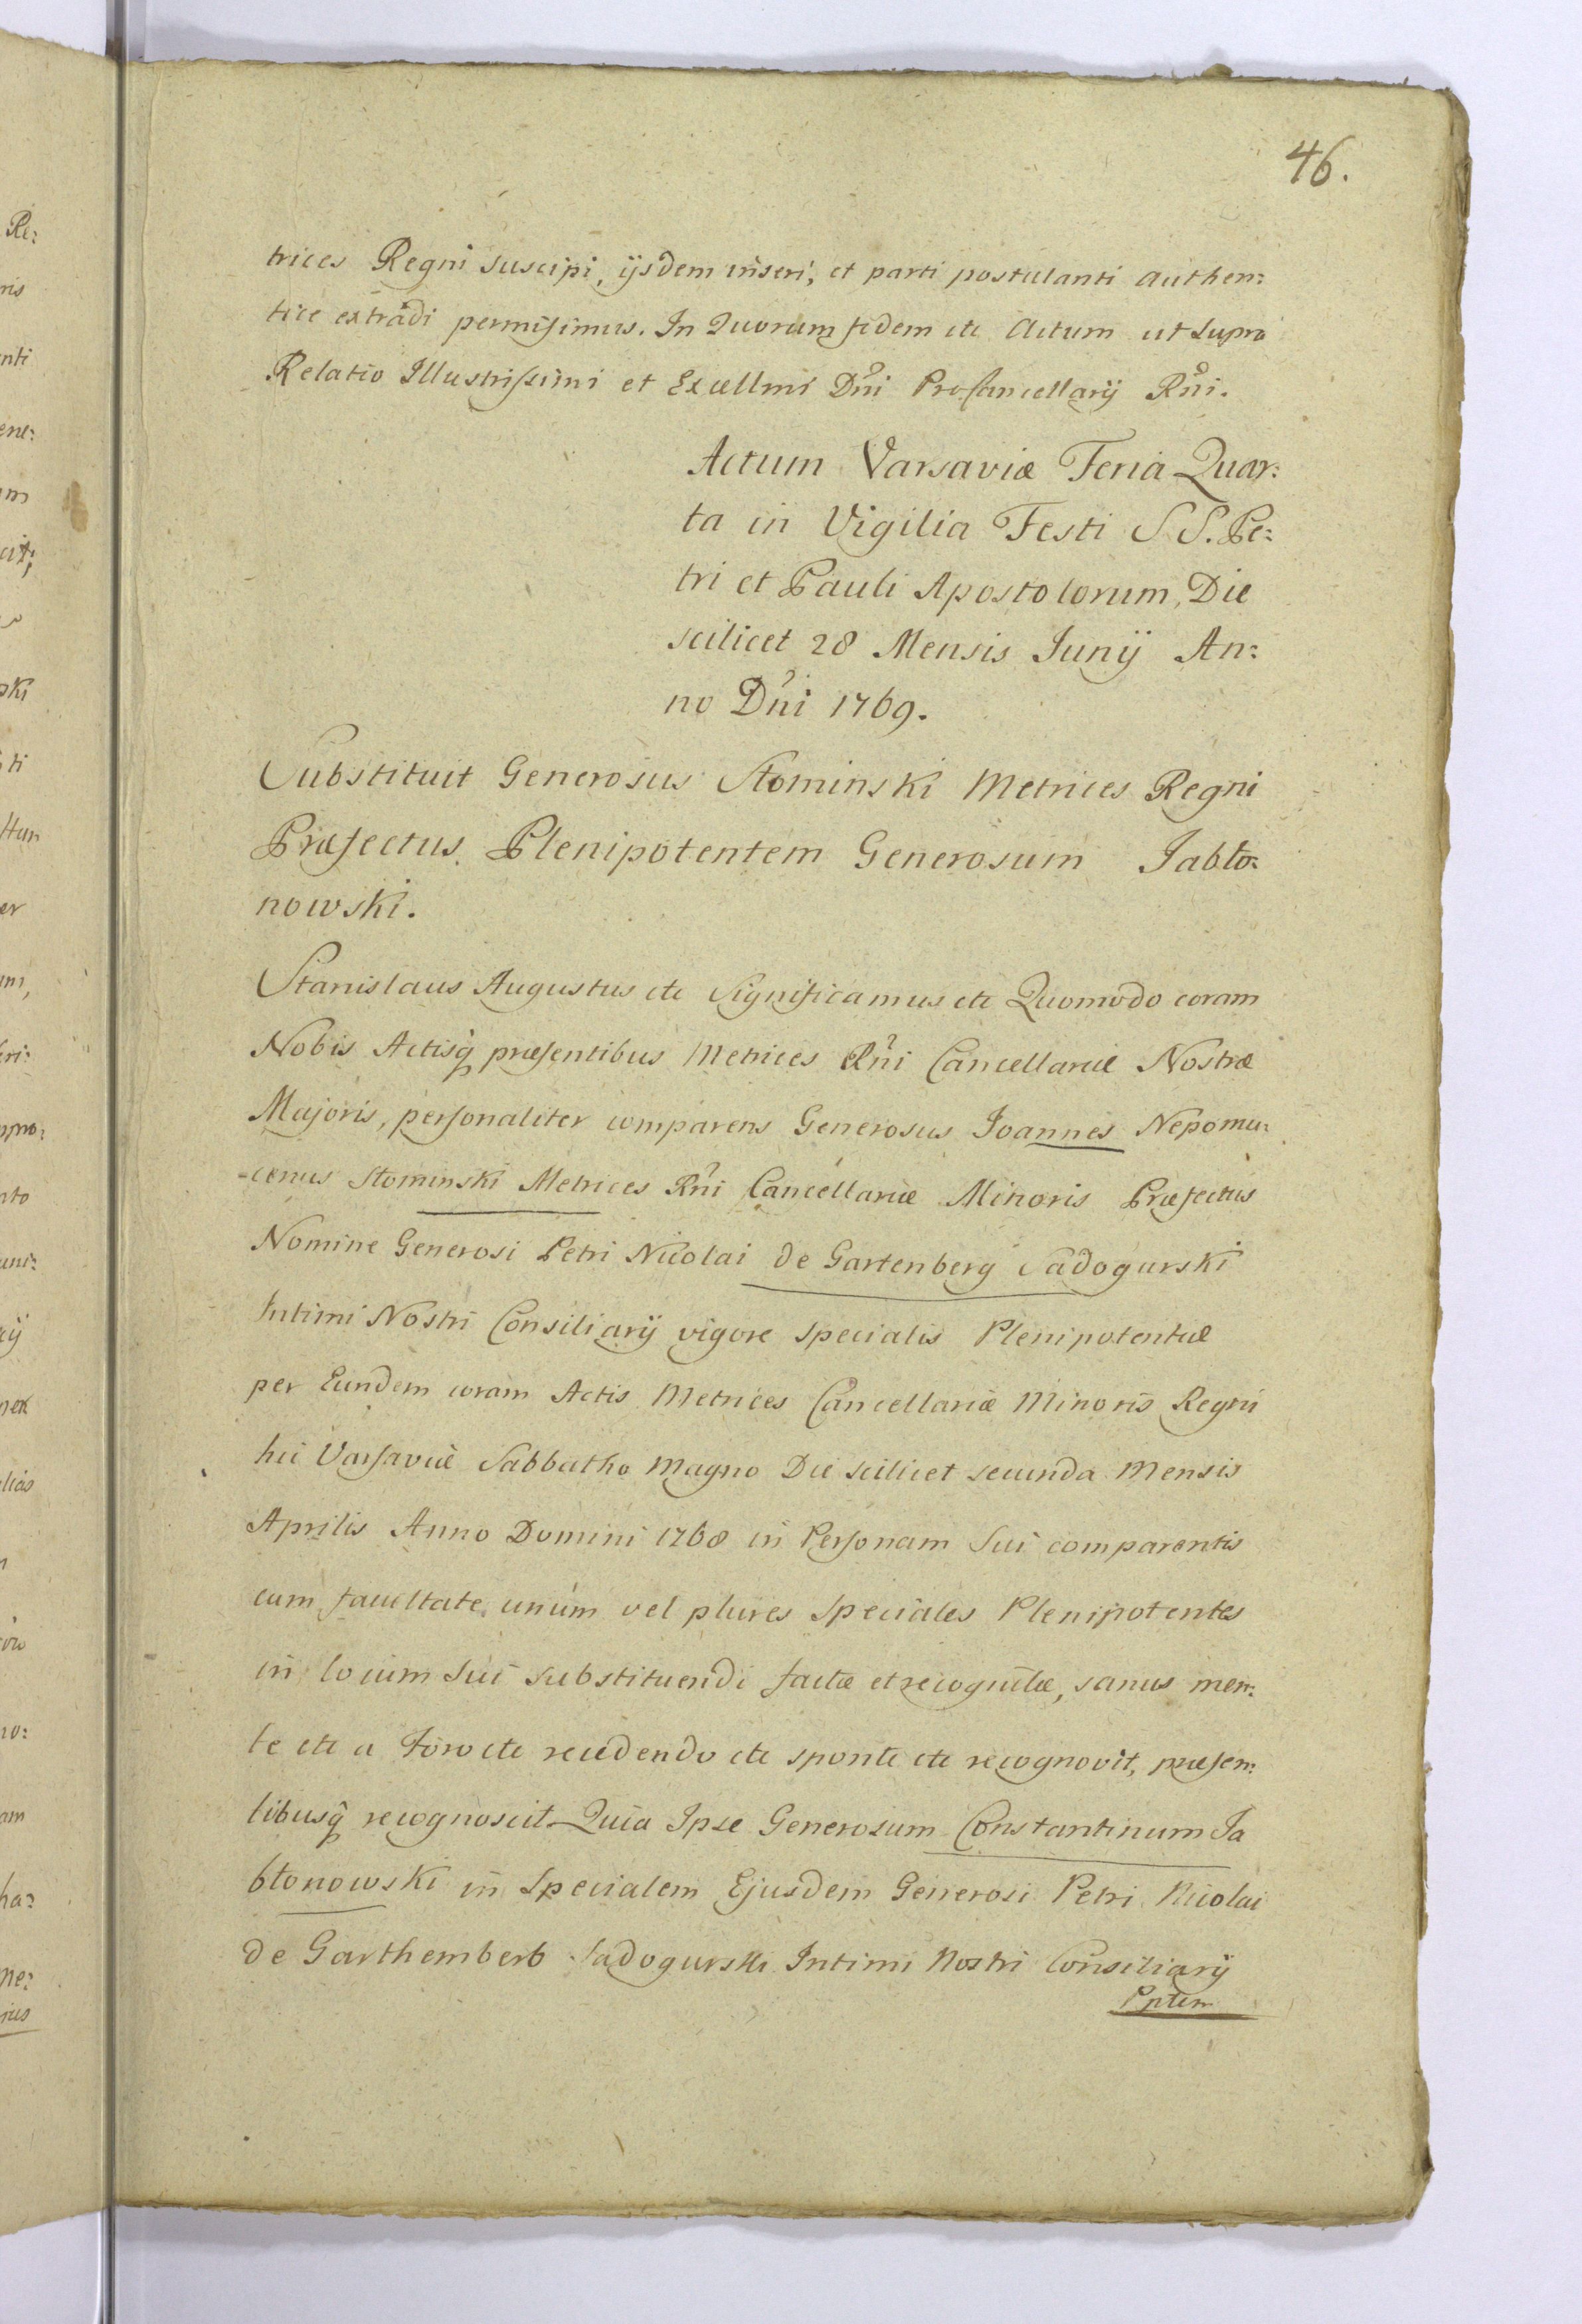 46.
trices Regni suscipi, ijsdem inseri, et parti postulanti authen:
tice extradi permisimus. In Quorum fidem etc Actum ut supra
Relatio Illustrissimi et Excellmi Dni ProCancellarij Rni.
Actum Varsaviæ Feria Quar:
ta in Vigilia Festi S S. Pe:
tri et Pauli Apostolorum, Die
scilicet 28 Mensis Junij An:
no Dni 1769.
Substituit Generosus Słominski Metrices Regni
Præfectus Plenipotentem Generosum Jabło:
nowski.
Stanislaus Augustus etc Significamus etc Quomodo coram
Nobis Actisq præsentibus Metrices Rni Cancellariæ Nostræ
Majoris, personaliter comparens Generosus Joannes Nepomu:
-cenus Słominski Metrices Rni Cancellariæ Minoris Præfectus
Nomine Generosi Petri Nicolai de Gartenberg Sadogurski
Intimi Nostri Consiliarij vigore specialis Plenipotentiæ
per Eundem coram Actis Metrices Cancellariæ Minoris Regni
hic Varsaviæ Sabbatho Magno Die scilicet secunda Mensis
Aprilis Anno Domini 1768 in Personam Sui comparentis
cum facultate unum vel plures Speciales Plenipotentes
in locum Sui substituendi factæ et recognitæ, sanus men:
te etc a Foro etc recedendo etc sponte etc recognovit, præsen:
tibusq recognoscit Quia Ipse Generosum Constantinum Ja
błonowski in Specialem Ejusdem Generosi Petri Nicolai
de Garthemberb Sadogurski Intimi Nostri Consiliarij
Pptem
Re:
ris
nti
ene:
um
cit;
ski
ti
er
um,
eri:
nto
uni:
cij
nex
lias
no:
am
ha:
me:
jus